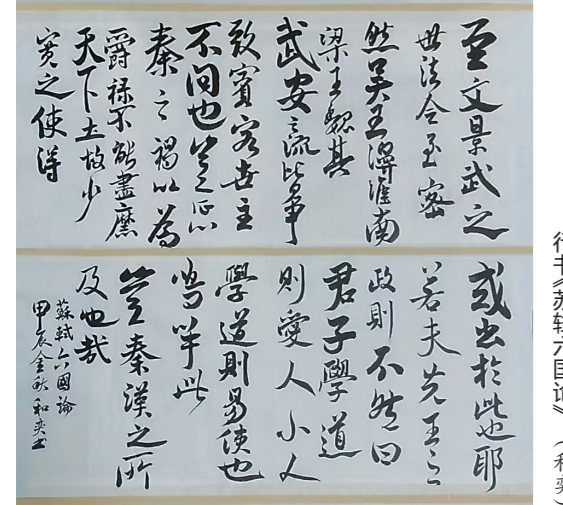 至文景武之
世法令至密
然吴王濞淮南
梁王魏其
武安之流皆争
致賓客世主
不问也豈懲
秦之禍以為
爵祿不能盡縻
天下士故少
寬之使得
或出於此也耶
若夫先王之
政則不然曰
君子學道
則愛人小人
學道則易使也
嗚呼此
豈秦漢之所
及也哉
蘇軾六國論
甲辰金秋和奕书
行书《苏轼六国论》（和奕）